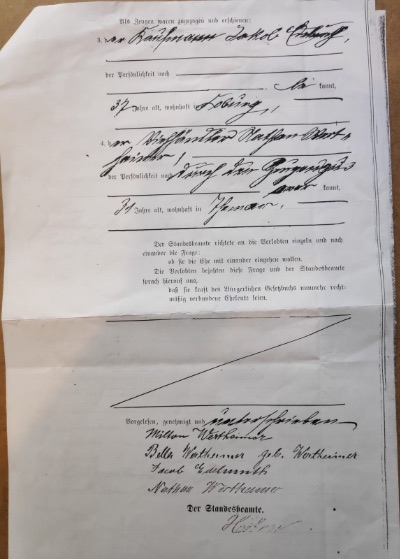 Als Zeugen waren zugezogen und erschienen:
3. der Kaufmann Jakob
der Persönlichkeit nach
be kannt,
37 Jahre alt, wohnhaft in Coburg,
4. der Viehhändler Nathan Wert-
heimer,
der Persönlichkeit nach durch den
kannt,
31 Jahre alt, wohnhaft in Themar,
Der Standesbeamte richtete an die Verlobten einzeln und nach
einander die Frage:
ob sie die Ehe mit einander eingehen wollen.
Die Verlobten bejahten diese Frage und der Standesbeamte
sprach hierauf aus,
daß sie kraft des Bürgerlichen Gesetzbuchs nunmehr recht-
mäßig verbundene Eheleute seien.
Vorgelesen, genehmigt und unterschrieben
Milton Wertheimer
Bella Wertheimer geb. Wertheimer
Jacob
Nathan Wertheimer
Der Standesbeamte.